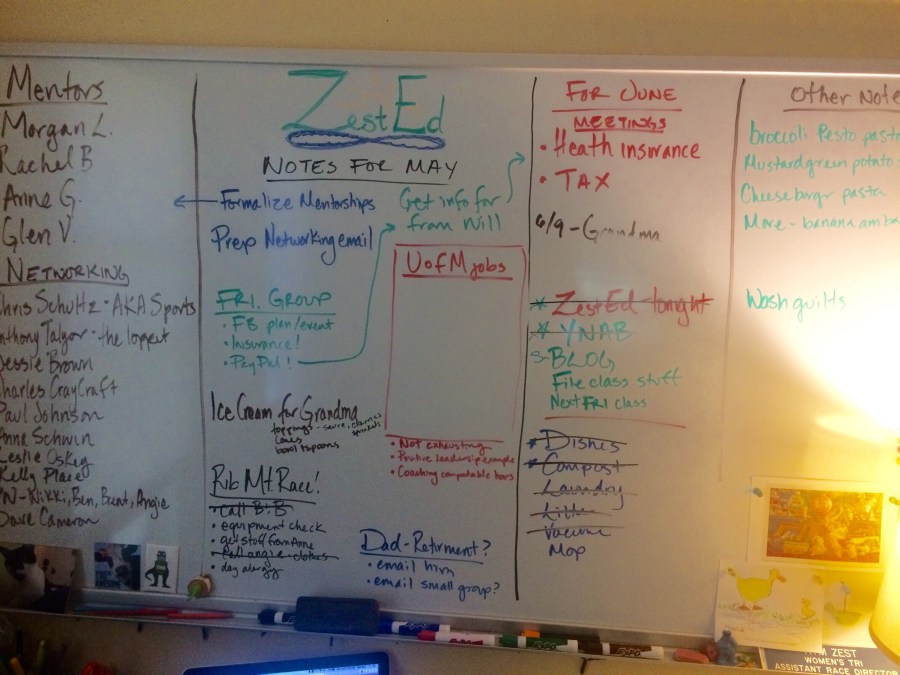 Mentors
Morgan L.
Rachel B
Anne G.
Glen V.
NETWORKING
Chris Schultz - AKA Sports
Anthony Taylor - the loppet
Jessie Brown
Charles CrayCraft
Paul Johnson
Anna Schwin
Leslie Oskey
Kelly Place
- Nikki, Ben, Brent, Angie
Dave Cameron
ZestEd
NOTES FOR MAY
Formalize Mentorships
Prep Networking email
Get info for
from Will
FRI. GROUP
• FB plan/event
• Insurance!
• PayPal!
UofM jobs
• Not exhausting
• leadership example
• Coaching compatable hours
Ice Cream for Grandma
toppings
bowls spoons
Rib Mt. Race!
• Call B.B
• equipment check
• get stuff from Anne
• day alergy
Dad-Retirment?
• email him
• email small group?
FOR JUNE
MEETINGS
• Heath insurance
• TAX
6/9 - Grandma
* ZestEd tonight
* YNAB
S-BLOG
File class stuff
Next FRI class
* Dishes
* Compost
Laundry
Vacuum
Mop
Other Note
broccoli Pesto pasta
Mustard green potato
Cheeseburgr pasta
More - banana
Wash quilts
ZEST
WOMEN'S TRI
ASSISTANT RACE DIRECTOR